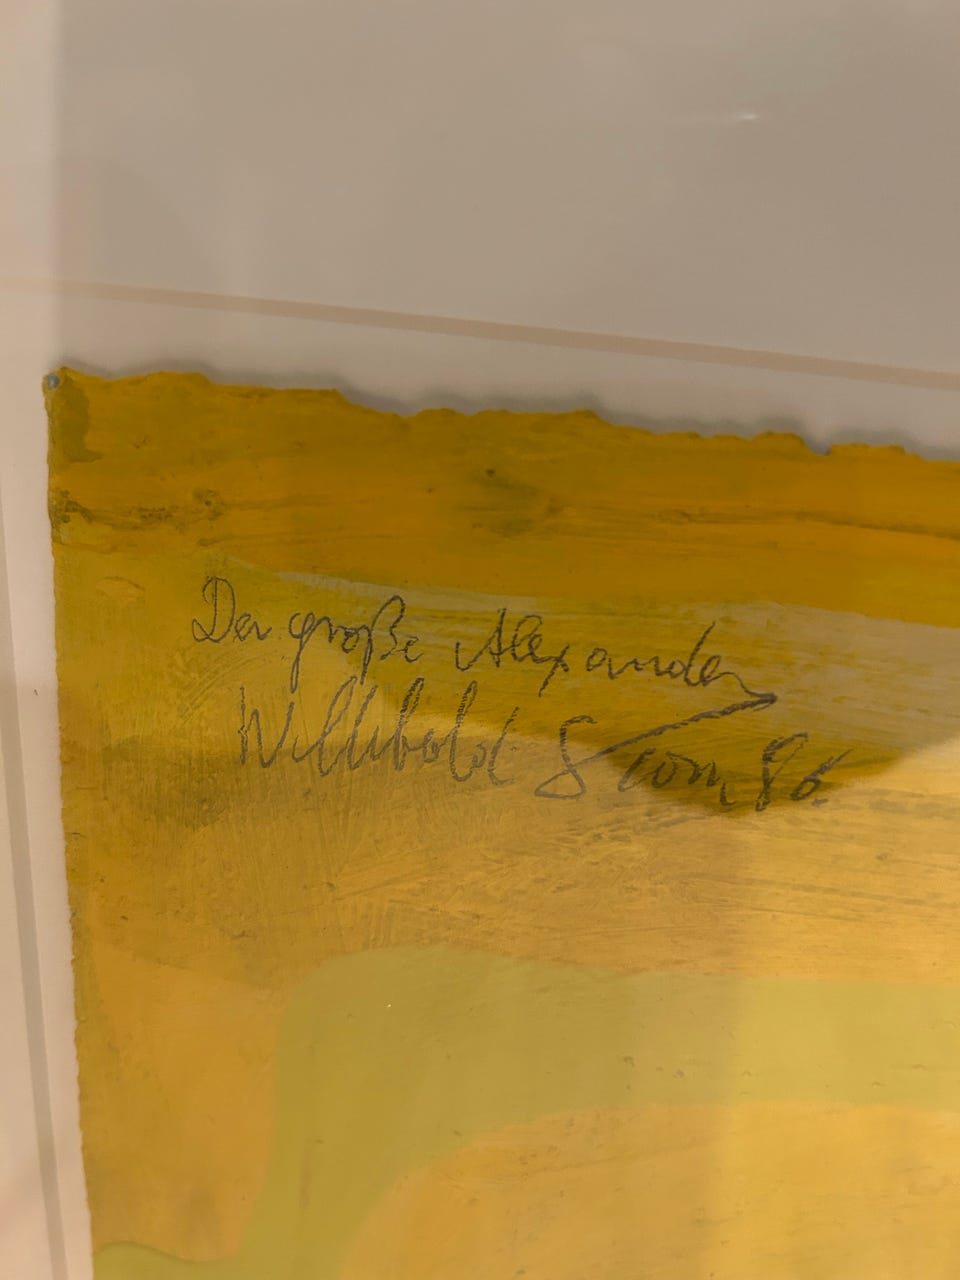 Der große Alexander
Willibold Storn 86.